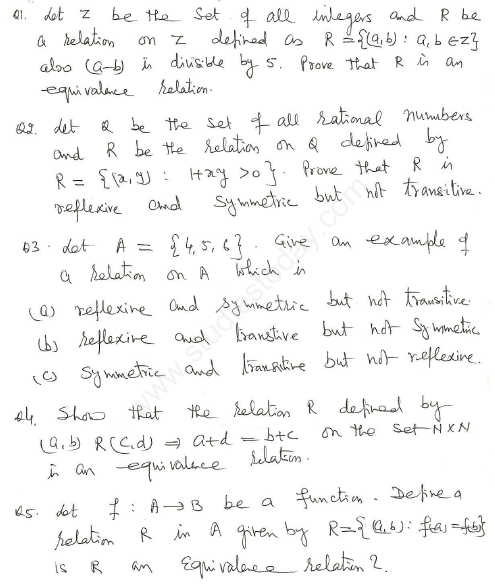 Q1. Let Z be the set of all integers and R be
a relation on Z defined as R = {(a,b) : a, b ∈ Z}
also (a-b) is divisible by 5. Prove that R is an
equivalence relation.
Q2. Let Q be the set of all rational numbers
and R be the relation on Q defined by
R = {(x,y) : 1+xy >0}. Prove that R is
reflexive and symmetric but not transitive.
Q3. Let A = {4,5,6}. Give an example of
a relation on A which is
(a) reflexive and symmetric but not transitive.
(b) reflexive and transtive but not symmetric
(c) symmetric and transitive but not reflexive.
Q4. Show that the relation R defined by
(a,b) R (c,d) ⇒ a+d = b+c on the set N×N
is an equivalence relation.
Q5. Let f : A→B be a function. Define a
relation R in A given by R={(a,b): f(a)=f(b)}
is R an equivalence relation?
www.studiestoday.com